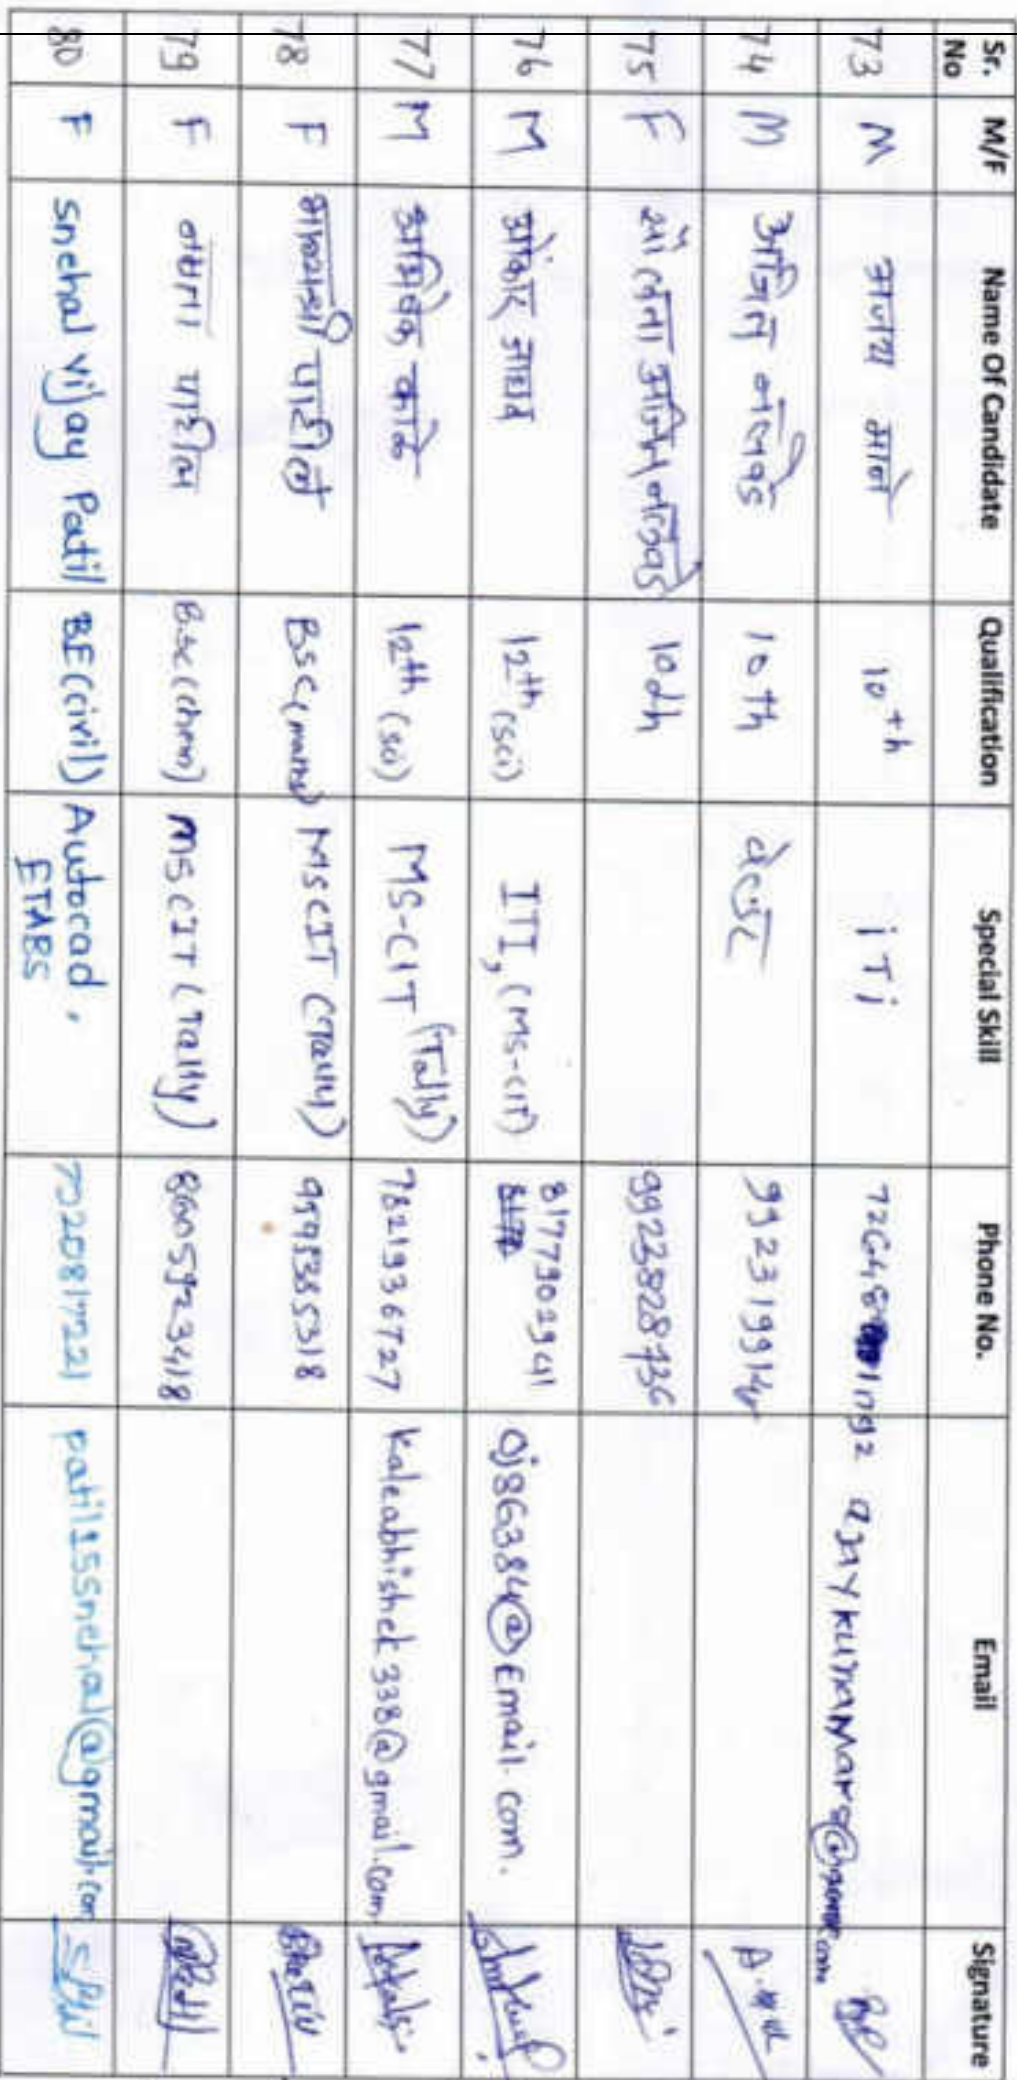 Sr. No M/F Name Of Candidate Qualification Special Skill Phone No. Email Signature
73 M अजय माने 10th iTi
74 M अजित नलवडे 10 th वेल्डर 992319914
75 F सौ लता अजित नलवडे 10th 9923828736
76 M ओंकार जाधव 12th (sci) ITI, (MS-CIT) 8177902941 oj86384@Email.com.
77 M अभिषेक काळे 12th (sci) MS-CIT (Tally) 7821936727 kaleabhishek338@gmail.com
78 F भाग्यश्री पाटील BSC (maths) MSCIT (Tally) 9595355318
79 F पाटील B.sc (chem) MSCIT (Tally) 8605923418
80 F snehal vijay Patil BE(civil) Autocad, ETABS 7020817221 patil15snehal@gmail.com